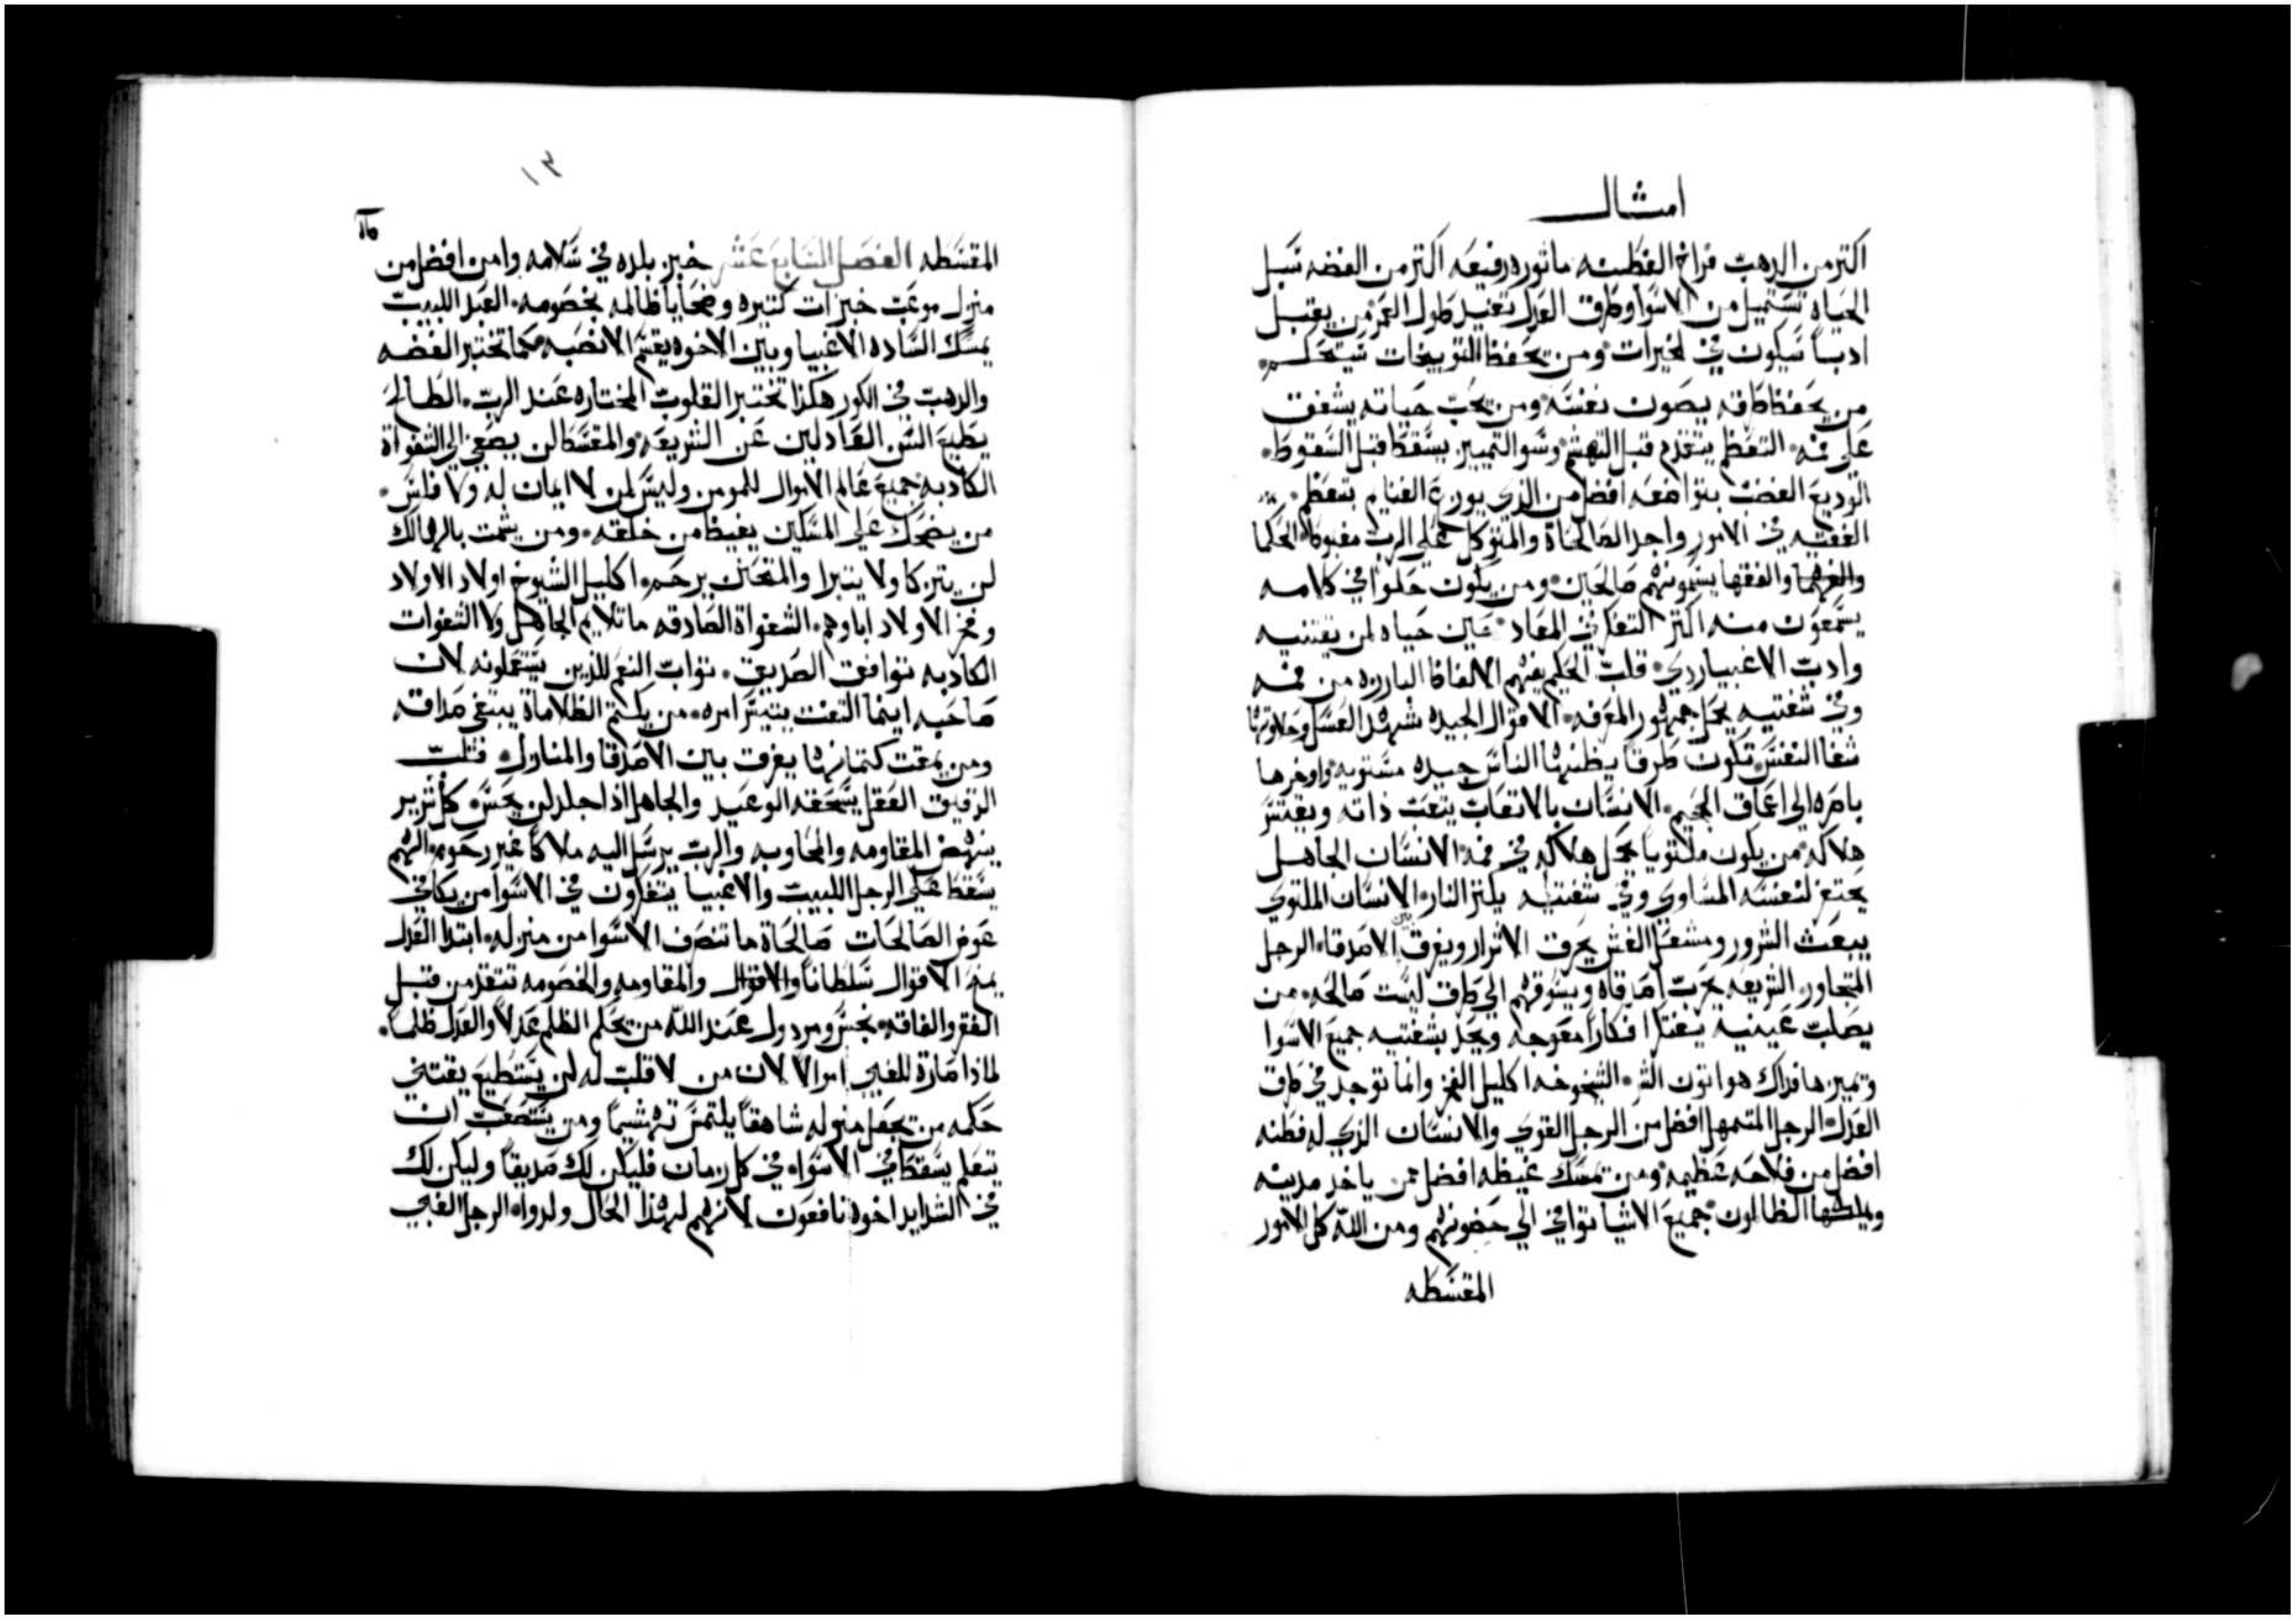 امثال
اكتر من الدهب فراخ الفطنه ماثوره رفيعه اكتر من الفضه سبل
الحياه تستميل من الاسوا وطرق العدل تفيد طول العمر من يقتبل
ادباً سيكون في الخيرات ومن يحفظ التوبيخات سيتحكم
من يحفظ طرقه يصون نفسه ومن يحب حياته يشفق
على فمه التعظم يتقدم قبل التهشم وسو التمييز يسقط قبل السقوط
الوديع الغضب بتواضعه افضل من الذي يوزع الغنايم بتعظم
الفقيه في الامور واجد الصالحاة والمتوكل على الرب مغبوط الحكما
والفهما والفقها يسمونهم صالحين ومن يكون حلوا في كلامه
يسمعون منه اكتر التفكر في المعاد عين حياه لمن يقتنيه
وادب الاغبيا ردي قلب الحكيم يفهم الالفاظ البارزه من فمه
وفي شفتيه يحمل جمهور المعرفه الاقوال الجيده شهد العسل وحلاوتها
شفا النفس تكون طرقاً يظنها الناس جيده مستويه واوخرها
ناظره الى اعماق الجحيم الانسان بالاتعاب يتعب ذاته ويفتش
هلاكه من يكون ملتوياً يحمل هلاكه في فمه الانسان الجاهل
يحتفر لنفسه المساوي وفي شفتيه يكنز النار الانسان الملتوي
يبعث الشرور ومشعل الغش يحرق الاشرار ويفرق بين الاصدقا الرجل
المتجاوز الشريعه يجرب اصدقاه ويسوقهم الى طرق ليست صالحه من
يصلب عينيه يفتكر افكاراً معوجه ويحد بشفتيه جميع الاسوا
وتميز هافداك هو اتون الشر الشيخوخه اكليل الفخر وانما توجد في طرق
العدل الرجل المتمهل افضل من الرجل القوي والانسان الذي له فطنه
افضل من فلاحه عظيمه ومن يمسك غيظه افضل ممن ياخد مدينه
ويملكها الظالمون جميع الاشيا توافي الى حضونهم ومن الله كل الامور
المقسطه
١٣
المقسطه الفصل السابع عشر خير بلده في سلامه وامن افضل من
منزل موعب خيرات كتيره وضحايا ظالمه بخصومه العبد اللبيب
يمسك الساده الاغبيا وبين الاخوه يقتسم الانصبه كما تختبر الفضه
والدهب في الكور هكذا تختبر القلوب المختاره عند الرب الطالح
يطيع السن العادلين عن الشريعه والمقسط لن يصغي الى الشفواة
الكادبه جميع عالم الاموال للمومن وليس لمن لا ايمان له ولا فلس
من يضحك على المسكين يغيظ من خلقه ومن يشمت بالهالك
لن يتزكا ولا يتبرا والمتحنن يرحم اكليل الشيوخ اولاد الاولاد
وفخر الاولاد اباوهم الشفواة الصادقه ما تلايم الجاهل ولا الشفوات
الكادبه توافق الصديق ثواب النعم للذين يستعملونه لان
صاحبه اينما التفت يتيسر امره من يكتم الظلاماة يبتغي صداقه
ومن يمقت كتمانها يفرق بين الاصدقا والمنازل قلب
الرقيق العقل يسحقه الوعيد والجاهل اذا جلد لن يحس كل شرير
ينهض المقاومه والمحاوبه والرب يرسل اليه ملاكاً غير رحوم الهم
يسقط على الرجل اللبيب والاغبيا يتفكرون في الاسوا من يكافي
عوض الصالحات صالحاة ما تنصرف الاسوا من منزله ابتدا العدل
يمنح الاقوال سلطاناً والاقوال والمقاومه والخصومه تتقدم قبل
الفقر والفاقه نجس ومردول عند الله من يحكم الظلم عدلاً والعدل ظلماً
لماذا صارة للغبي اموالا لان من لا قلب له لن يستطيع يقتني
حكمه من يجعل منزله شاهقاً يلتمس تهشيماً ومن يستصعب ان
يتعلم يسقط في الاسواء في كل زمان فليكن لك صديقاً وليكن لك
في الشدايد اخوة نافعون لانهم لهذا الحال ولدوا الرجل الغبي